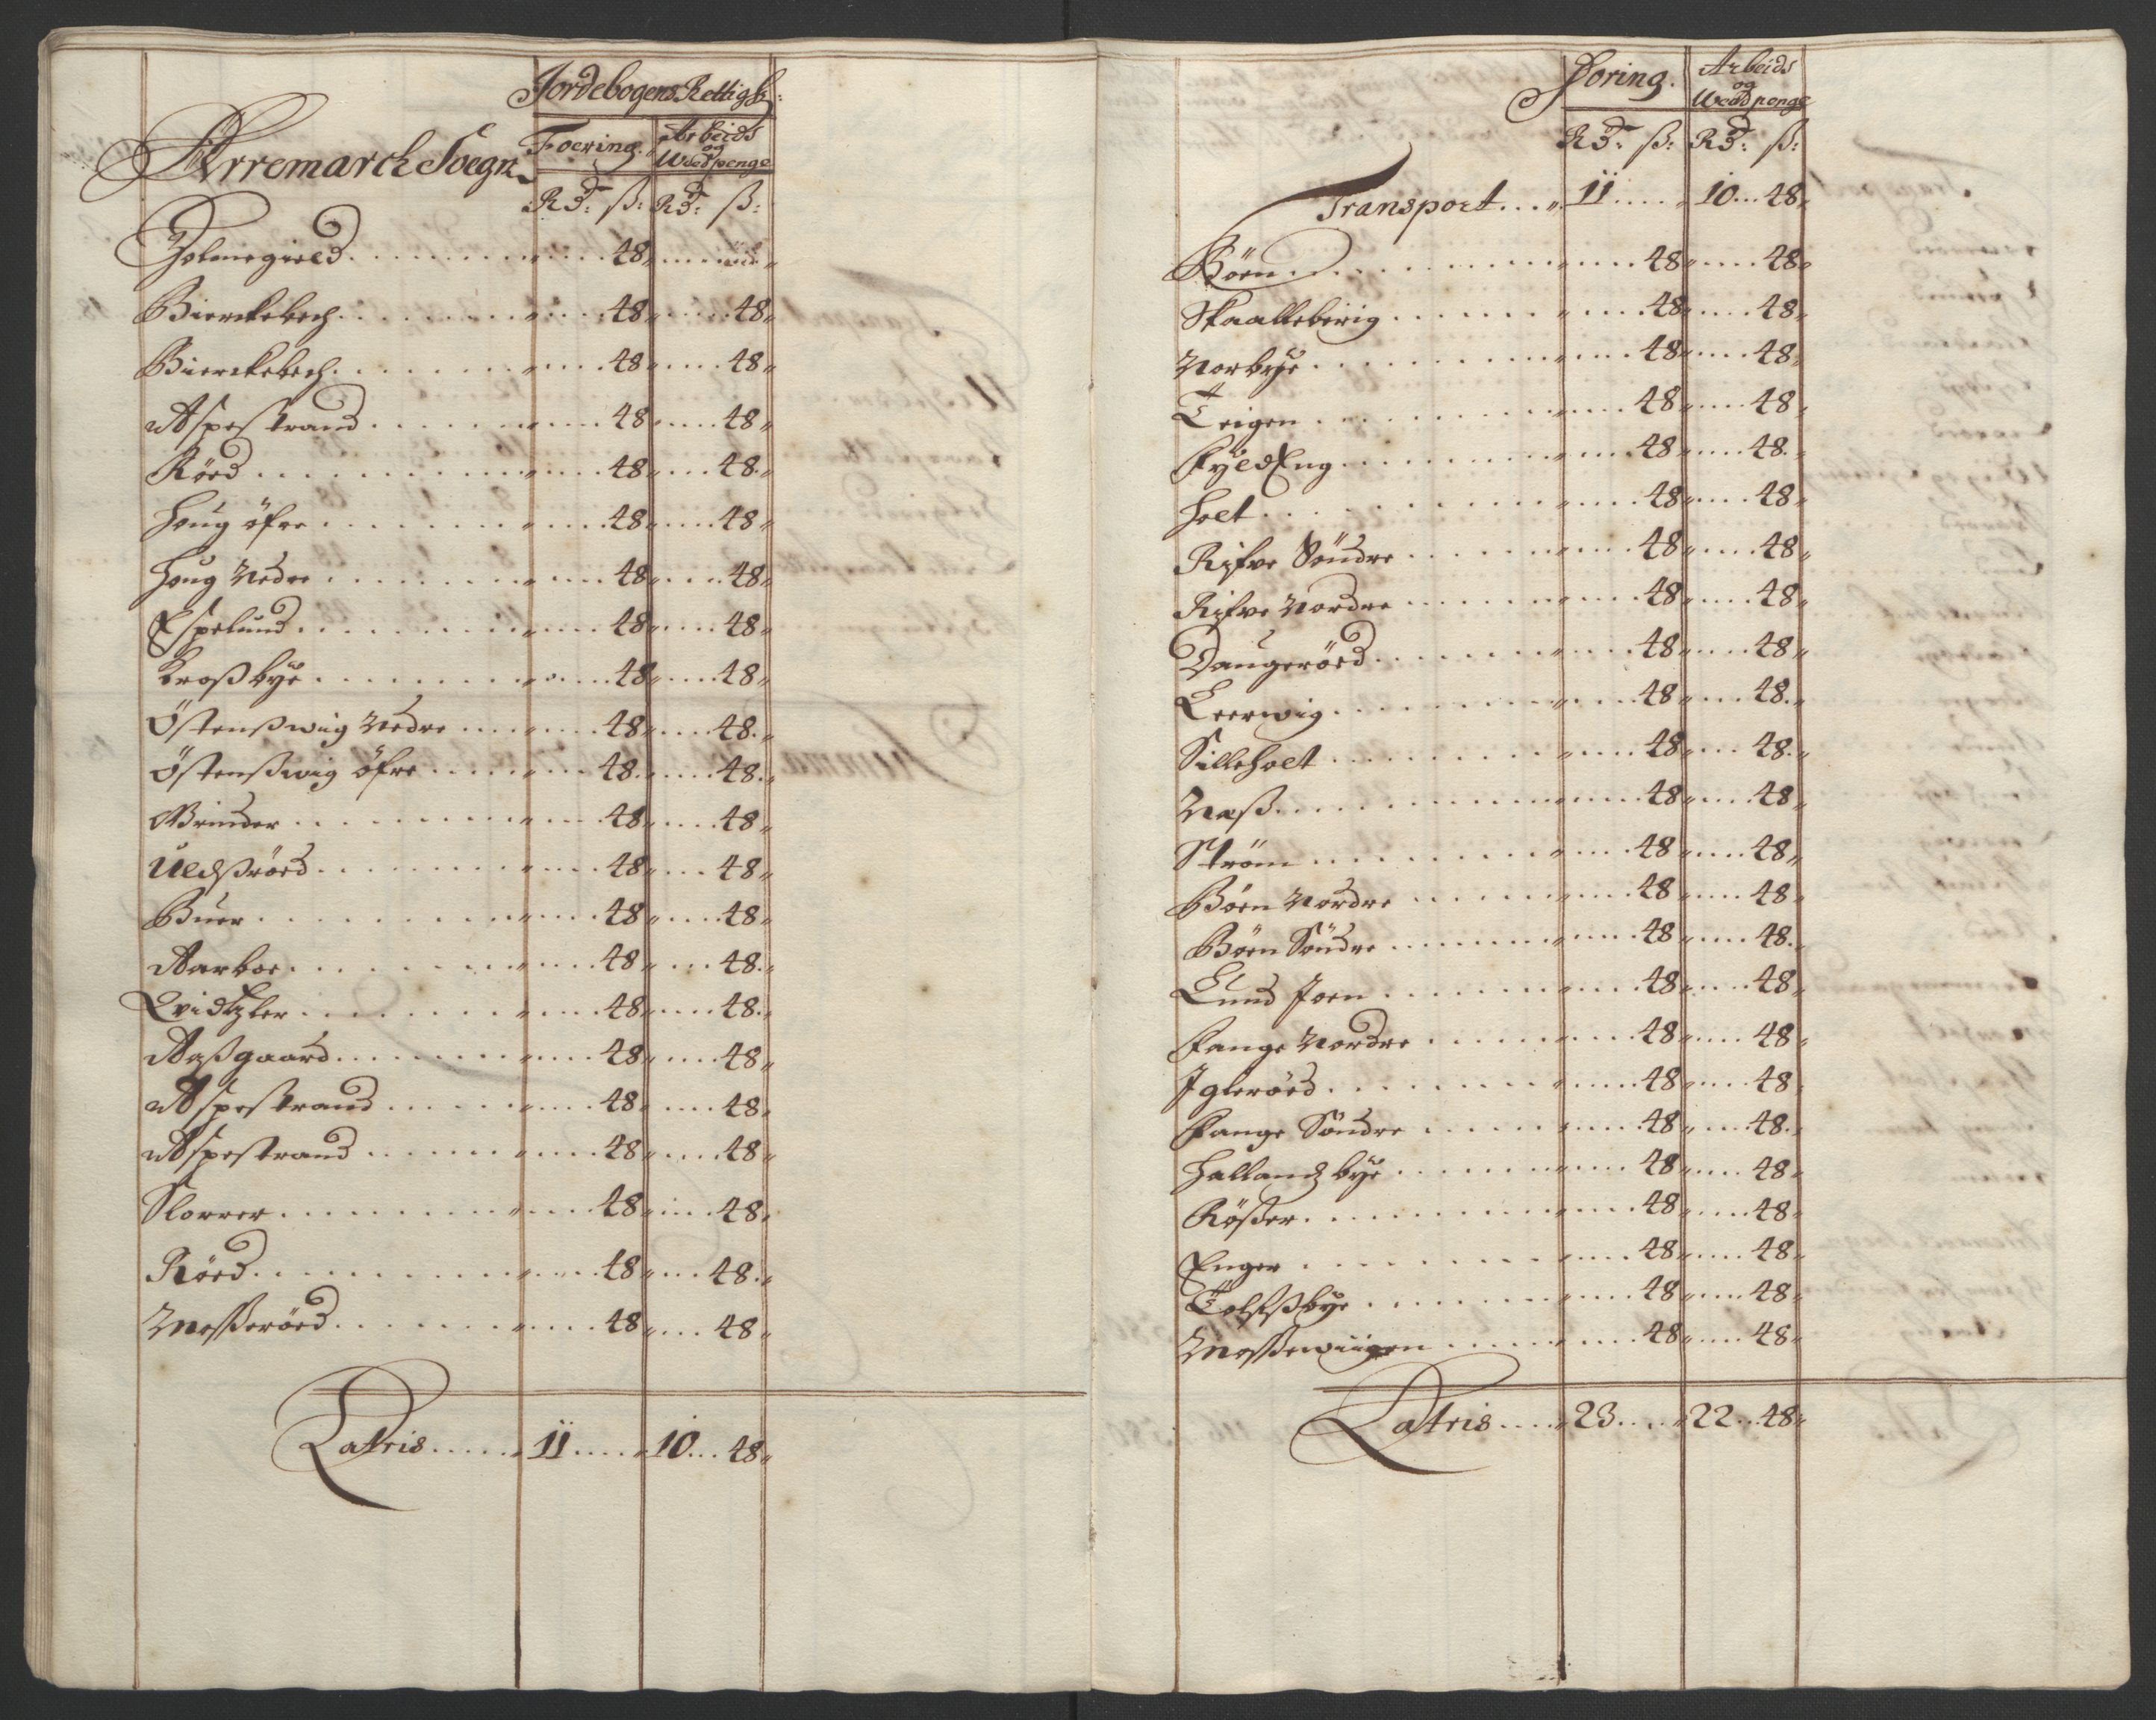 Jordebogens Rettigh:
Arremarch Soegn
Foering. Arbeids og Weedpenge
Rd: ß: Rd: ß:
Holmegield . . . 48 . . .
Bierckebech . . . 48 . . . 48
Bierckebech . . . 48 . . . 48
Aspestrand . . . 48 . . . 48
Röed . . . 48 . . . 48
Houg öfre . . . 48 . . . 48
Houg Nedre . . . 48 . . . 48
Espelund . . . 48 . . . 48
Kroßbÿe . . . 48 . . . 48
Östenßwig Nedre . . . 48 . . . 48
Östenßwig öfre . . . 48 . . . 48
Grinder . . . 48 . . . 48
Uldßröed . . . 48 . . . 48
Buer . . . 48 . . . 48
Aarboe . . . 48 . . . 48
. . . 48 . . . 48
Aaßgaard . . . 48 . . . 48
Aspestrand . . . 48 . . . 48
Aspestrand . . . 48 . . . 48
Slorrer . . . 48 . . . 48
Röed . . . 48 . . . 48
Moßeröed . . . 48 . . . 48
Latris . . . 11 . . . 10 . . . 48
Foring. Arbeids og Weedpenge
Rd: ß: Rd: ß:
Transport . . . 11 . . . 10 . . . 48
Böen . . . 48 . . . 48
Skaalleberig . . . 48 . . . 48
Norbÿe . . . 48 . . . 48
Teigen . . . 48 . . . 48
FyldEng . . . 48 . . . 48
Holt . . . 48 . . . 48
Rifve Söndre . . . 48 . . . 48
Rifve Nordre . . . 48 . . . 48
Daugeröed . . . 48 . . . 48
Leerwig . . . 48 . . . 48
Silleholt . . . 48 . . . 48
Næß . . . 48 . . . 48
Ström . . . 48 . . . 48
Böen Nordre . . . 48 . . . 48
Böen Söndre . . . 48 . . . 48
Lund Joen . . . 48 . . . 48
Fange Nordre . . . 48 . . . 48
Igleröed . . . 48 . . . 48
Fange Söndre . . . 48 . . . 48
Hallandz bÿe . . . 48 . . . 48
Rößer . . . 48 . . . 48
Enger . . . 48 . . . 48
Tolfsbye . . . 48 . . . 48
Moßewiigen . . . 48 . . . 48
Latris . . . 23 . . . 22 . . . 48